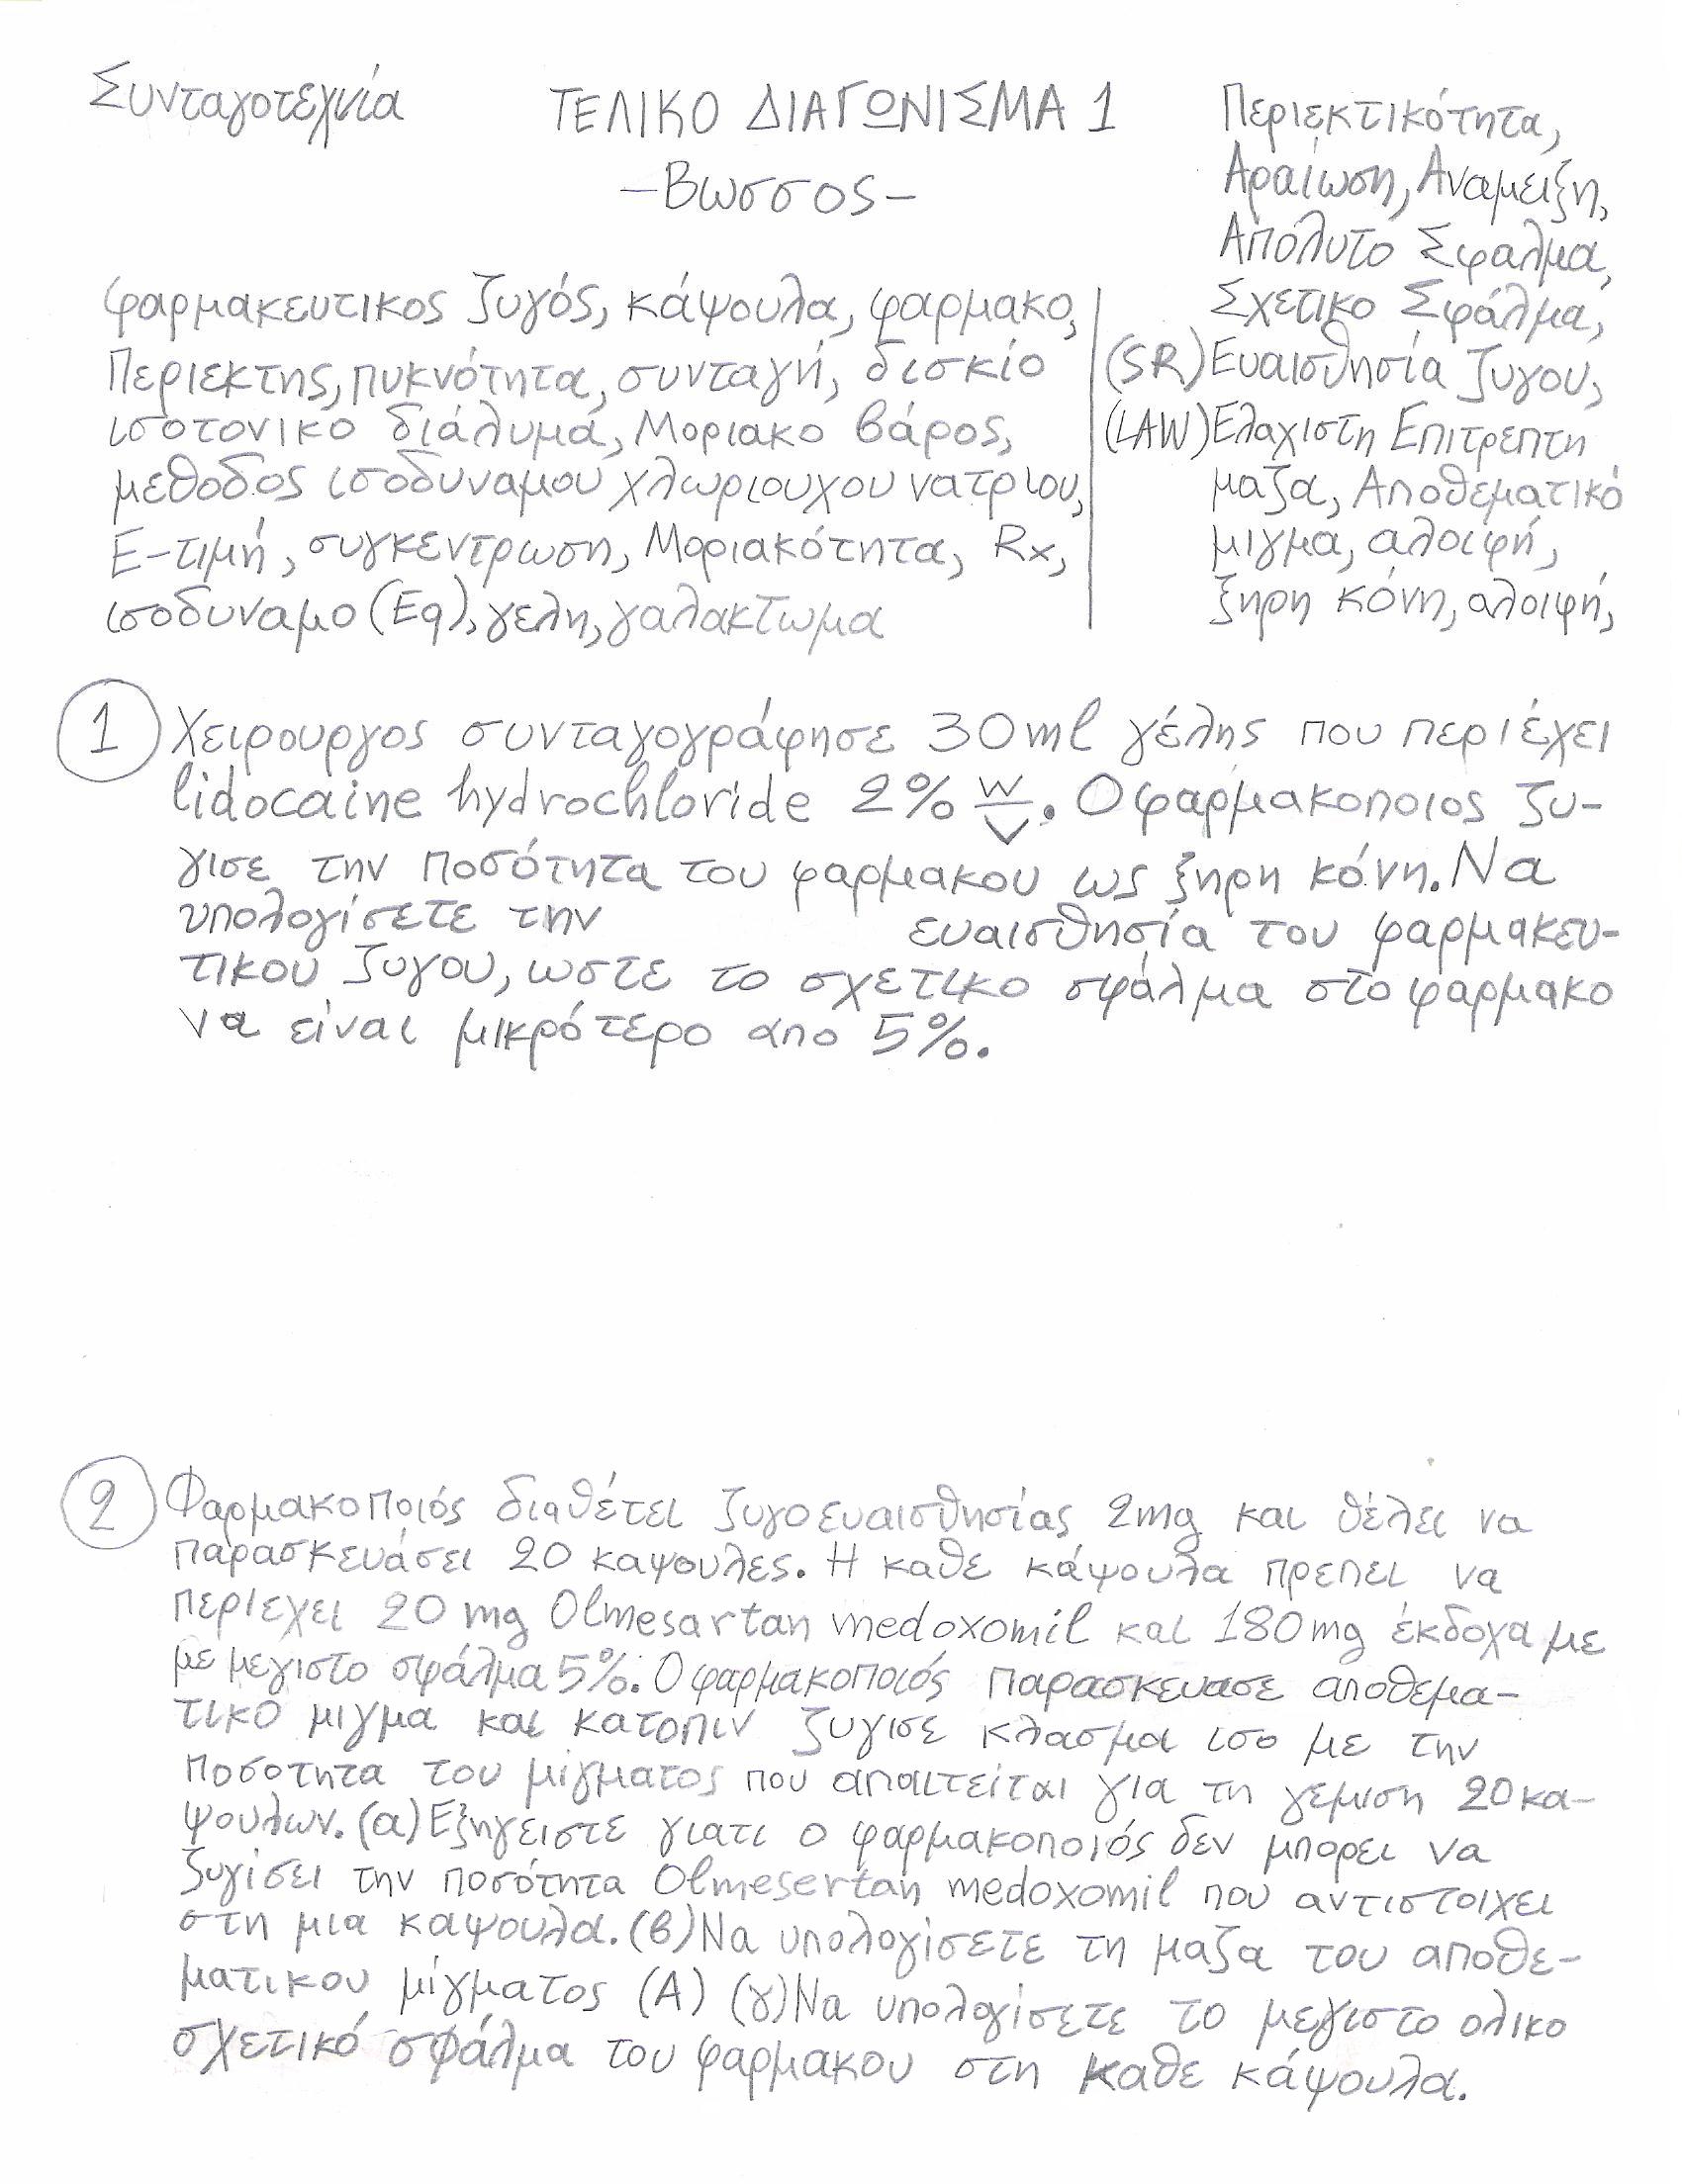 Συνταγοτεχνία
ΤΕΛΙΚΟ ΔΙΑΓΩΝΙΣΜΑ 1
-Βωσσος-
Περιεκτικότητα,
Αραίωση, Αναμειξη,
Απόλυτο Σφαλμα,
Σχετικο Σφάλμα,
(SR) Ευαισθησία ζυγου,
(LAW) Ελαχιστη Επιτρεπτη
μαζα, Αποθεματικό
μιγμα, αλοιφή,
ξηρη κόνη, αλοιφή,
φαρμακευτικος ζυγός, κάψουλα, φαρμακο,
Περιεκτης, πυκνότητα, συνταγή, δισκίο
ισοτονικο διάλυμα, Μοριακο βάρος,
μεθοδος ισοδυναμου χλωριουχου νατριου,
Ε-τιμή, συγκεντρωση, Μοριακότητα, Rx,
ισοδυναμο (Eq), γελη, γαλακτωμα
1 Χειρουργος συνταγογράφησε 30ml γέλης που περιέχει
lidocaine hydrochloride 2% w/v. Ο φαρμακοποιος ζυ-
γισε την ποσότητα του φαρμακου ως ξηρη κόνη. Να
υπολογίσετε την ευαισθησία του φαρμακευ-
τικου ζυγου, ωστε το σχετικο σφάλμα στο φαρμακο
να είναι μικρότερο απο 5%.
2 Φαρμακοποιός διαθέτει ζυγο ευαισθησίας 2mg και θέλει να
παρασκευάσει 20 καψουλες. Η καθε κάψουλα πρεπει να
περιεχει 20 mg Olmesartan medoxomil και 180mg έκδοχα με
με μεγιστο σφάλμα 5%. Ο φαρμακοποιός παρασκευασε αποθεμα-
τικο μιγμα και κατοπιν ζυγισε κλασμα ισο με την
ποσοτητα του μίγματος που απαιτείται για τη γεμιση 20 κα-
ψουλων. (α) Εξηγειστε γιατι ο φαρμακοποιός δεν μπορει να
ζυγίσει την ποσότητα Olmesertan medoxomil που αντιστοιχει
στη μια καψουλα. (β) Να υπολογίσετε τη μαζα του αποθε-
ματικου μίγματος (Α) (γ) Να υπολογίσετε το μεγιστο ολικο
σχετικό σφάλμα του φαρμακου στη καθε κάψουλα.